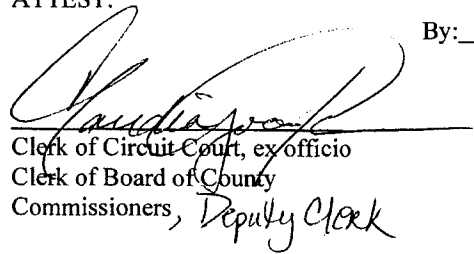 ATTEST:
By:_
Claudia
Clerk of Circuit Court, ex officio
Clerk of Board of County
Commissioners, Deputy Clerk